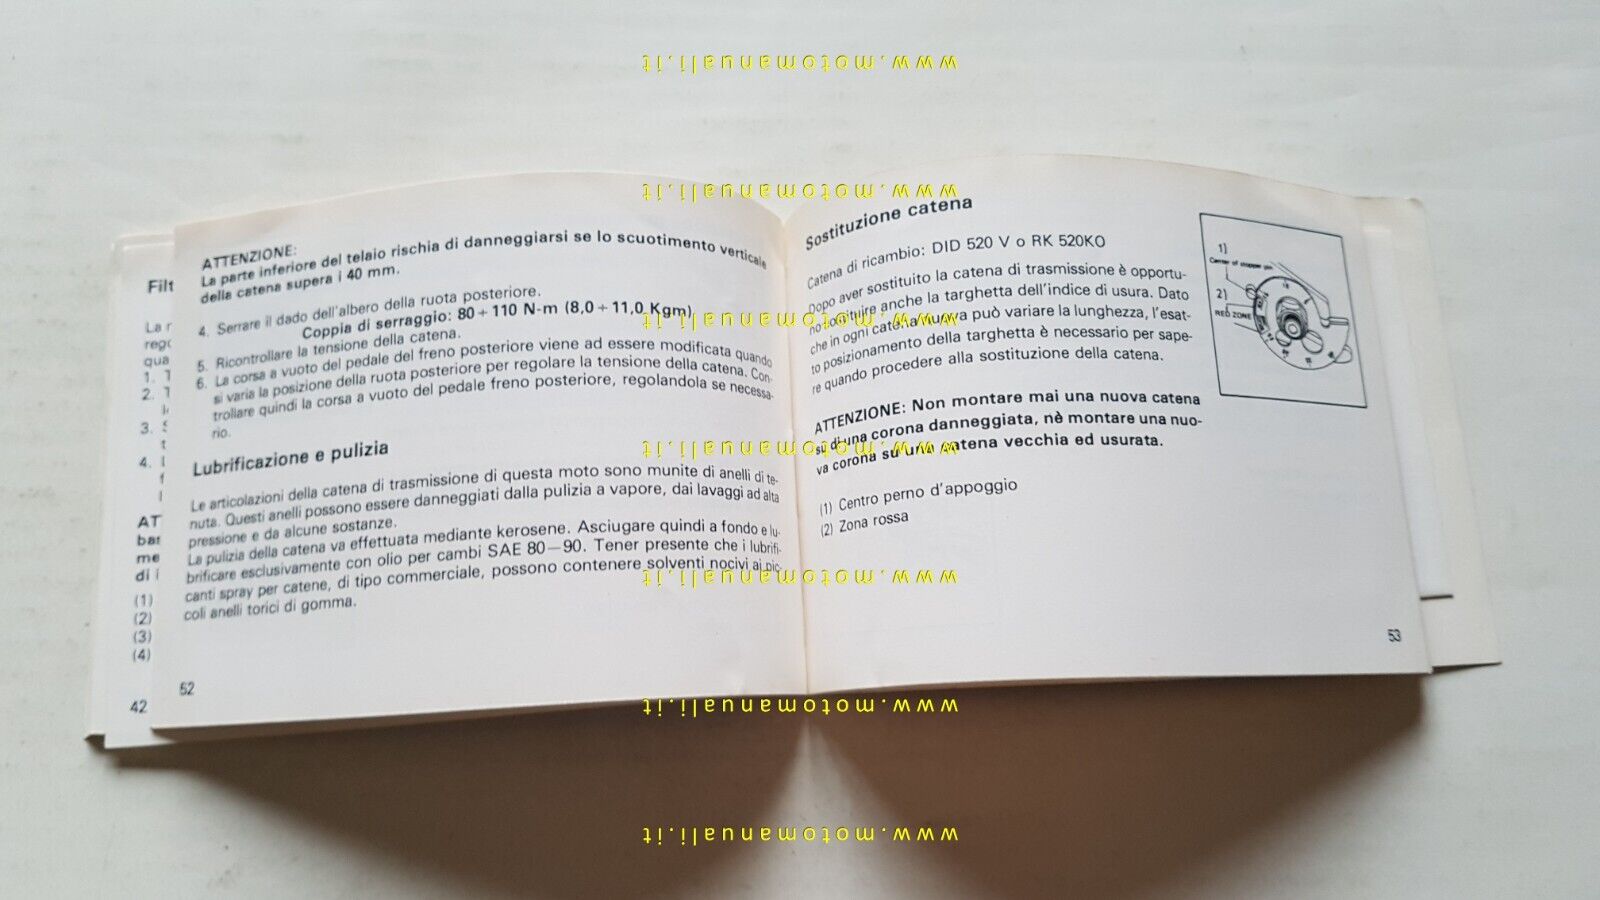 www.motomanuali.it
www.motomanuali.it
www.motomanuali.it
www.motomanuali.it
www.motomanuali.it
www.motomanuali.it
www.motomanuali.it
Filt
La r
rego
qua
1. T
2. T
3. S
4. L
AT
bar
me
di i
(1)
(2)
(3)
(4)
42
ATTENZIONE:
La parte inferiore del telaio rischia di danneggiarsi se lo scuotimento verticale
della catena supera i 40 mm.
4. Serrare il dado dell'albero della ruota posteriore.
Coppia di serraggio: 80÷110 N-m (8,0÷11,0 Kgm)
5. Ricontrollare la tensione della catena.
6. La corsa a vuoto del pedale del freno posteriore viene ad essere modificata quando
si varia la posizione della ruota posteriore per regolare la tensione della catena. Con-
trollare quindi la corsa a vuoto del pedale freno posteriore, regolandola se necessa-
rio.
Lubrificazione e pulizia
Le articolazioni della catena di trasmissione di questa moto sono munite di anelli di te-
nuta. Questi anelli possono essere danneggiati dalla pulizia a vapore, dai lavaggi ad alta
pressione e da alcune sostanze.
La pulizia della catena va effettuata mediante kerosene. Asciugare quindi a fondo e lu-
brificare esclusivamente con olio per cambi SAE 80—90. Tener presente che i lubrifi-
canti spray per catene, di tipo commerciale, possono contenere solventi nocivi ai pic-
coli anelli torici di gomma.
52
Sostituzione catena
Catena di ricambio: DID 520 V o RK 520KO
Dopo aver sostituito la catena di trasmissione è opportu-
no sostituire anche la targhetta dell'indice di usura. Dato
che in ogni catena nuova può variare la lunghezza, l'esat-
to posizionamento della targhetta è necessario per sape-
re quando procedere alla sostituzione della catena.
ATTENZIONE: Non montare mai una nuova catena
su di una corona danneggiata, nè montare una nuo-
va corona su una catena vecchia ed usurata.
(1) Centro perno d'appoggio
(2) Zona rossa
1)
Center of stopper pin
2)
RED ZONE
53